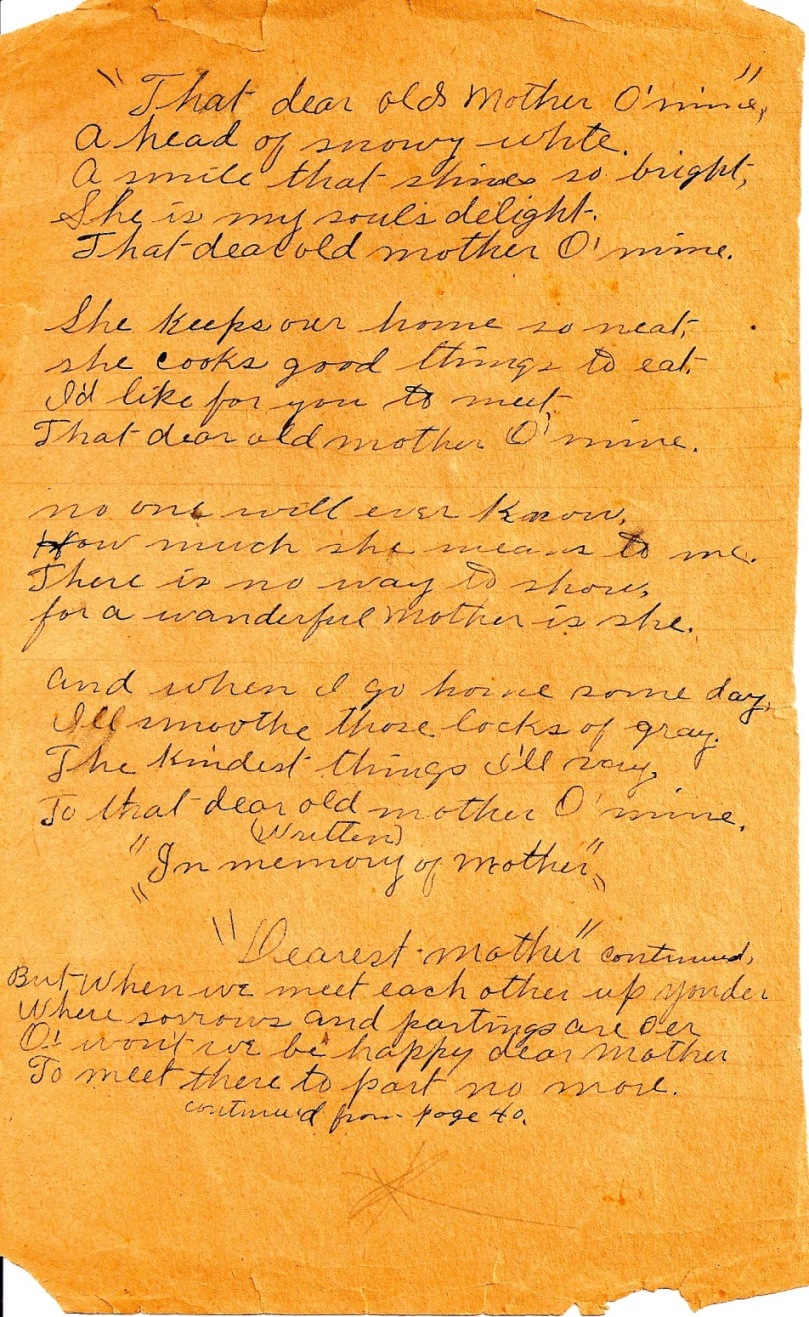 "That dear old Mother O'mine,"
A head of snowy white.
A smile that shines so bright,
She is my soul's delight.
That dear old mother O' mine.
She keeps our home so neat,
she cooks good things to eat.
I'd like for you to meet,
That dear old mother O' mine.
no one will ever know,
How much she means to me.
There is no way to show,
for a wanderful Mother is she.
And when I go home some day,
I'll smoothe those locks of gray.
The kindest things I'll say,
To that dear old mother O' mine.
(Written)
"In memory of Mother"
"Dearest mother" continued,
But When we meet each other up yonder
Where sorrows and partings are O'er
O! won't we be happy dear Mother
To meet there to part no more.
continued from page 40.